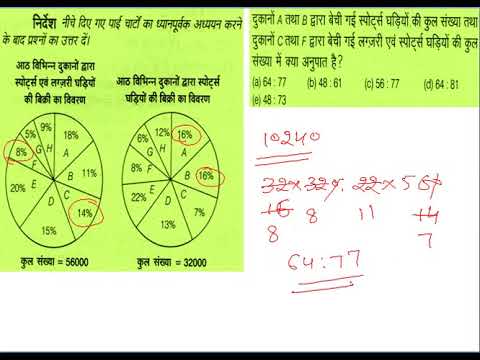 निर्देश नीचे दिए गए पाई चार्टों का ध्यानपूर्वक अध्ययन करने
के बाद प्रश्नों का उत्तर दें।
आठ विभिन्न दुकानों द्वारा
स्पोर्ट्स एवं लग्ज़री घड़ियों
की बिक्री का विवरण
5%
9%
18%
8%
G
H
A
F
B
11%
20%
E
C
D
14%
15%
कुल संख्या = 56000
आठ विभिन्न दुकानों द्वारा स्पोर्ट्स
घड़ियों की बिक्री का विवरण
12%
16%
6%
H
A
8%
G
F
B
16%
22%
E
C
D
7%
13%
कुल संख्या = 32000
दुकानों A तथा B द्वारा बेची गई स्पोर्ट्स घड़ियों की कुल संख्या तथा
दुकानों C तथा F द्वारा बेची गई लग्ज़री एवं स्पोर्ट्स घड़ियों की कुल
संख्या में क्या अनुपात है?
(a) 64 : 77 (b) 48 : 61 (c) 56 : 77 (d) 64 : 81
(e) 48 : 73
10240
32 × 32 % : 22 × 56
16 8 11 14
8 7
64 : 77